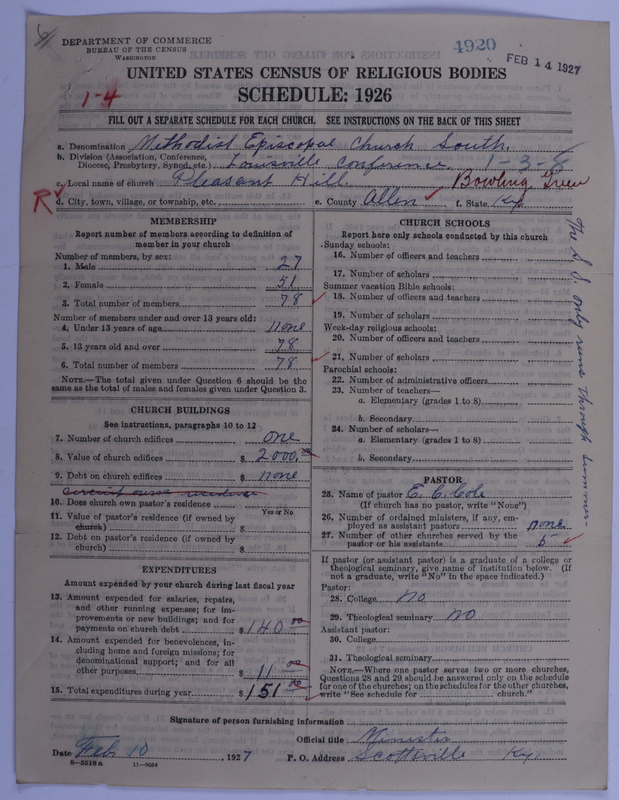 DEPARTMENT OF COMMERCE
BUREAU OF THE CENSUS
WASHINGTON
4920
FEB 14 1927
UNITED STATES CENSUS OF RELIGIOUS BODIES
1-4
SCHEDULE: 1926
FILL OUT A SEPARATE SCHEDULE FOR EACH CHURCH. SEE INSTRUCTIONS ON THE BACK OF THIS SHEET
a. Denomination Methodist Episcopal Church South.
b. Division (Association, Conference, Diocese, Presbytery, Synod, etc.) Louisville Conference 1-3-8
c. Local name of church Pleasant Hill. Bowling Green
R d. City, town, village, or township, etc. e. County Allen f. State Ky.
MEMBERSHIP
Report number of members according to definition of
member in your church
Number of members, by sex:
1. Male 27
2. Female 51
3. Total number of members 78
Number of members under and over 13 years old:
4. Under 13 years of age none
5. 13 years old and over 78
6. Total number of members 78
NOTE.—The total given under Question 6 should be the
same as the total of males and females given under Question 3.
CHURCH BUILDINGS
See instructions, paragraphs 10 to 12
7. Number of church edifices one
8. Value of church edifices $ 2000.00
9. Debt on church edifices $ none
Circuit owns residence
10. Does church own pastor's residence
Yes or No
11. Value of pastor's residence (if owned by
church) $
12. Debt on pastor's residence (if owned by
church) $
EXPENDITURES
Amount expended by your church during last fiscal year
13. Amount expended for salaries, repairs,
and other running expenses; for im-
provements or new buildings; and for
payments on church debt $ 140 00
14. Amount expended for benevolences, in-
cluding home and foreign missions; for
denominational support; and for all
other purposes $ 11 00
15. Total expenditures during year $ 151 00
CHURCH SCHOOLS
Report here only schools conducted by this church
Sunday schools:
16. Number of officers and teachers
17. Number of scholars
Summer vacation Bible schools:
18. Number of officers and teachers
19. Number of scholars
Week-day religious schools:
20. Number of officers and teachers
21. Number of scholars
Parochial schools:
22. Number of administrative officers
23. Number of teachers—
a. Elementary (grades 1 to 8)
b. Secondary
24. Number of scholars—
a. Elementary (grades 1 to 8)
b. Secondary
The S.S. only runs through summer.
PASTOR
25. Name of pastor E. C. Cole
(If church has no pastor, write "None")
26. Number of ordained ministers, if any, em-
ployed as assistant pastors none
27. Number of other churches served by the
pastor or his assistants 5
If pastor (or assistant pastor) is a graduate of a college or
theological seminary, give name of institution below. (If
not a graduate, write "No" in the space indicated.)
Pastor:
28. College no
29. Theological seminary no
Assistant pastor:
30. College
31. Theological seminary
NOTE.—Where one pastor serves two or more churches,
Questions 28 and 29 should be answered only on the schedule
for one of the churches; on the schedules for the other churches,
write "See schedule for church."
Signature of person furnishing information
Official title Minister
Date Feb. 10, 1927 P. O. Address Scottsville Ky.
8—5518a 11—9084